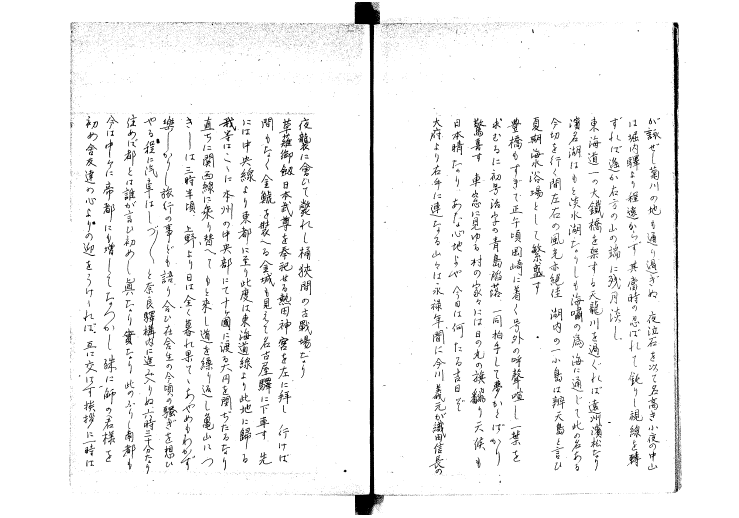 が詠ぜし菊川の地も通り過ぎぬ 夜泣石を以て名高き小夜の中山
は堀内驛より程遠からず 其當時の忍ばれて 鈍りし視線を轉
ずれば遙か右方の山の端に残月淡し
東海道一の大鐵橋を架する天龍川を過ぐれば遠州濱松なり
濱名湖はもと淡水湖なりしも海嘯の為海に通じて此の名ある
今切を行く間左右の風光亦絶佳 湖内の一小島は辨天島と言ひ
夏期海水浴場として繁盛す
豊橋もすぎて正午頃岡崎に着く 号外の呼聲喧し 一葉を
求むるに初号活字の青島陥落 一同拍手して夢かとばかり
驚喜す 車窓に見ゆる村の家々には日の丸の旗飜り天候も
日本晴なり あな心地よや 今日は何たる吉日ぞ
大府より右手に連なる山々は永禄年間に今川義元が織田信長の
夜襲に會ひて斃れし桶狭間の古戰場なり
草薙御劔日本武尊を奉祀せる熱田神宮を左に拜し 行けば
間もなく金鯱を装へる金城も見えて名古屋驛に下車す 先
には中央線より東都に至り此度は東海道線より此地に歸る
我等はこゝに本州の中央部にて十ヶ國に渡る大円を閉ぢたるなり
直ちに関西線に乘り替へてもと来し道を繰り返し亀山につ
きしは三時半頃 上野より日は全く暮れ果てゝあやめもわかず
樂しかりし旅行の事ども語り合ひ在舎生の今頃の騒ぎを想ひ
やる程に汽車はしづ〱と奈良驛構内に進み入りぬ六時三十分なり
住めば都とは誰が言ひ初めし眞なり實なり 此のふりし南都も
今は中々に帝都にも増してなつかし 殊に師の君様を
初め舎友達の心よりの迎をうけければ、互に交はす挨拶に一時は